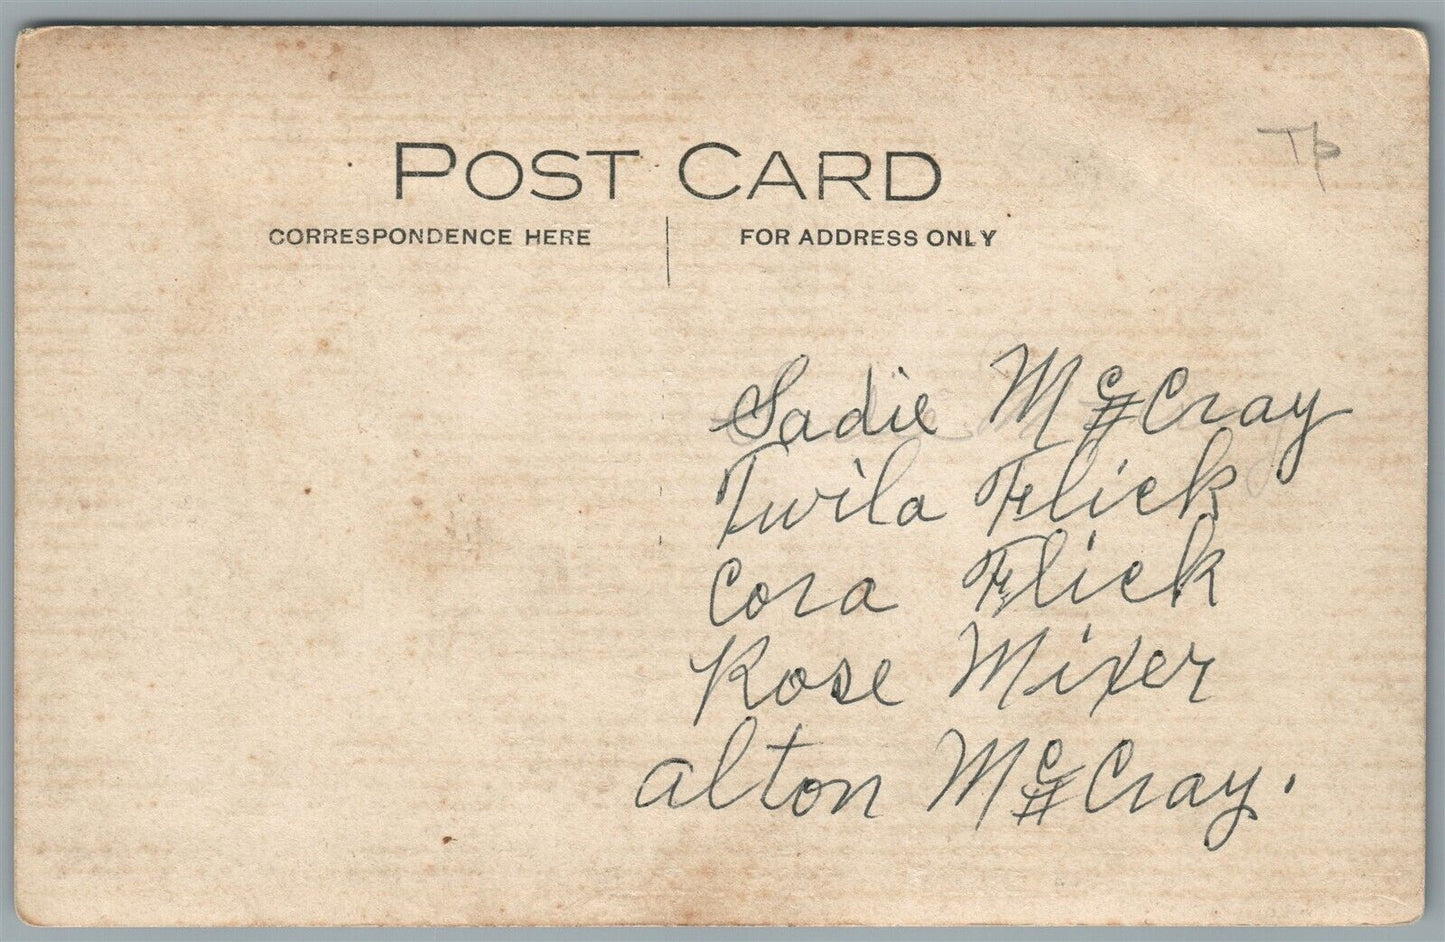 POST CARD
CORRESPONDENCE HERE
FOR ADDRESS ONLY
Sadie McCray
Twila Flick
Cora Flick
Rose Mixer
Alton McCray.